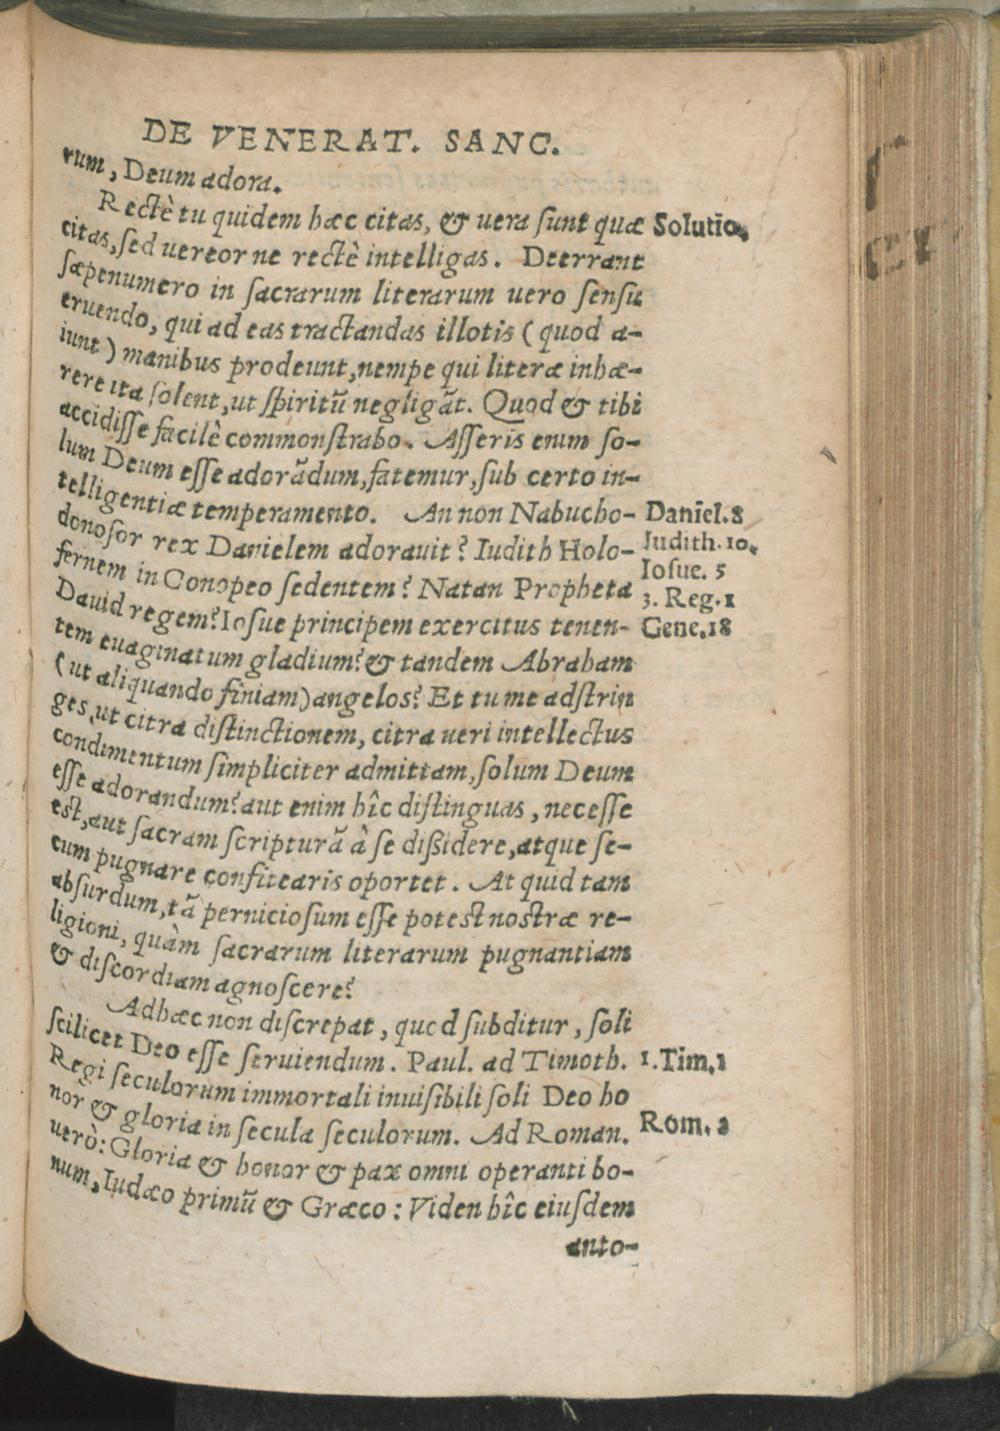 DE VENERAT. SANC.
rum, Deum adora.
Rectè tu quidem hæc citas, & uera sunt quæ Solutio.
citas, sed uereor ne rectè intelligas. Deerrant
sæpenumero in sacrarum literarum uero sensu
eruendo, qui ad eas tractandas illotis (quod a-
iunt) manibus prodeunt, nempe qui literæ inhæ-
rere ita solent, ut spiritū negligāt. Quod & tibi
accidisse facilè commonstrabo. Asseris enim so-
lum Deum esse adorādum, fatemur, sub certo in-
telligentiæ temperamento. An non Nabucho- Daniel.8
donosor rex Danielem adorauit? Iudith Holo- Iudith.10.
fernem in Conopeo sedentem? Natan Propheta Iosue. 5
3. Reg.1
Dauid regem? Iosue principem exercitus tenen- Gene.18
tem euaginatum gladium? & tandem Abraham
(ut aliquando finiam) angelos? Et tu me adstrin
ges, ut citra distinctionem, citra ueri intellectus
condimentum simpliciter admittam, solum Deum
esse adorandum? aut enim hîc distinguas, necesse
est, aut sacram scripturā à se dißidere, atque se-
cum pugnare confitearis oportet. At quid tam
absurdum, tā perniciosum esse potest nostræ re-
ligioni, quàm sacrarum literarum pugnantiam
& discordiam agnoscere?
Adhæc non discrepat, quod subditur, soli
scilicet Deo esse seruiendum. Paul. ad Timoth. 1.Tim.1
Regi seculorum immortali inuisibili soli Deo ho
nor & gloria in secula seculorum. Ad Roman. Rom. 2
uerò: Gloria & honor & pax omni operanti bo-
num, Iudæo primū & Græco: Viden hîc eiusdem
anto-